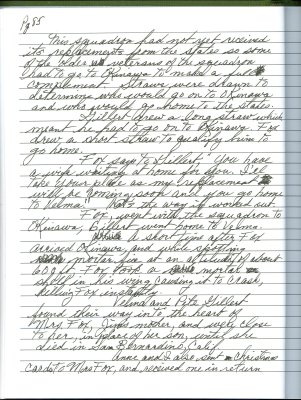 Pg 85
This squadron had not yet received
its replacements from the states so some
of the older veterans of the squadron
had to go to Okinawa to make a full
complement. Straws were drawn to
determine who would go on to Okinawa
and who would go home to the states.
Gillert drew a long straw which
meant he had to go on to Okinawa. Fox
drew a short straw to qualify him to
go home.
Fox says to Gillert, "You have
a wife waiting at home for you. I'll
take your place as my replacement
will be coming soon and you go home
to Velma." That's the way it worked out.
Fox went with the squadron to
Okinawa, Gillert went home to Velma.
A short time after Fox
arrived Okinawa, and while spotting
mortar fire at an altitude of about
600 ft. Fox took a mortar
shell in his wing causing it to crash,
killing Fox instantly.
Velma and Pete Gillert
found their way into, the heart of
Mrs. Fox, Jim's mother, and were close
to her, in place of her son, until she
died in San Bernardino, Calif.
Anne and I also sent Christmas
cards to Mrs Fox, and recieved one in return